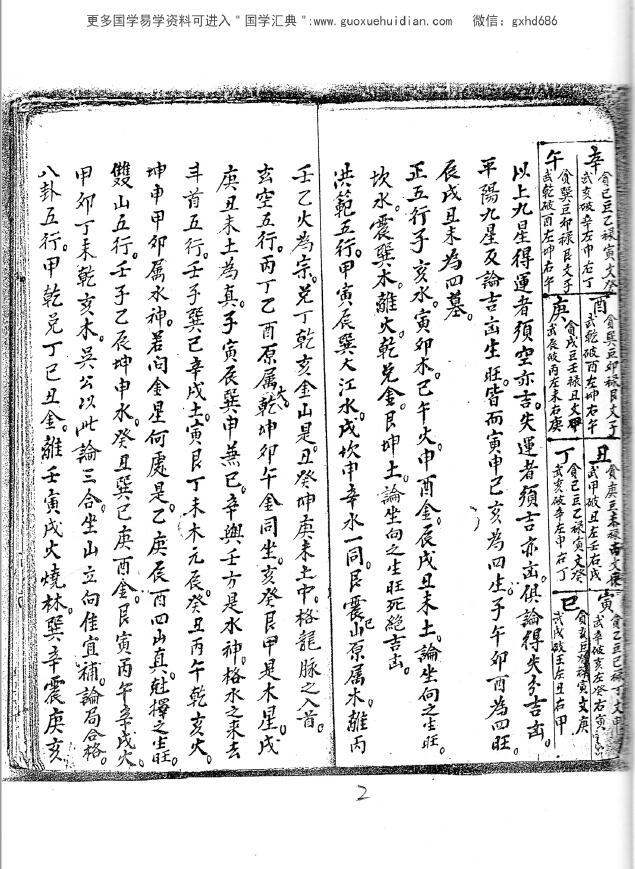 更多国学易学资料可进入＂国学汇典＂:www.guoxuehuidian.com 微信：gxhd686
辛
貪巳巨乙祿寅文癸
武亥破辛左申右丁
酉
貪巽巨卯祿艮文子
武乾破酉左坤右午
丑
貪庚巨未祿
武甲破丑左壬右戌
寅
貪乙巨巳祿丁文
武辛破亥左癸右寅
午
貪巽巨卯祿艮文子
武乾破酉左坤右午
庚
貪戌巨壬祿丑文甲
武辰破丙左未右庚
丁
貪巳巨乙祿寅文癸
武亥破辛左申右丁
巳
武戌破壬左丑右甲
以上九星得運者須空亦吉。失運者須吉亦凶。俱論得失分吉凶。
平陽九星及論吉凶生旺。皆而寅申巳亥為四生。子午卯酉為四旺。
辰戌丑未為四墓。
正五行。子亥水。寅卯木。巳午火。申酉金。辰戌丑未土。論坐向之生旺。
坎水。震巽木。離火。乾兌金。艮坤土。論坐向之生旺死絕吉凶。
洪範五行。甲寅辰巽大江水。戌坎申辛水一同。艮震巳山原属木。離丙
壬乙火為宗。兌丁乾亥金山是。丑癸坤庚未土中。格龍脉之入首。
玄空五行。丙丁乙酉原属火。乾坤卯午金同坐。亥癸艮甲是木星。戌
庚丑未土為真。子寅辰巽申兼巳。辛與壬方是水神。格水之来去
斗首五行。壬子巽巳辛戌土。寅艮丁未木元辰。癸丑丙午乾亥火。
坤申甲卯属水神。若问金星何處是。乙庚辰酉四山真。尅擇之生旺。
雙山五行。壬子乙辰坤申水。癸丑巽巳庚酉金。艮寅丙午辛戌火。
甲卯丁未乾亥木。吳公以此論三合。坐山立向佳宜補。論局合格。
八卦五行。甲乾兌丁巳丑金。離壬寅戌火燒林。巽辛震庚亥
2